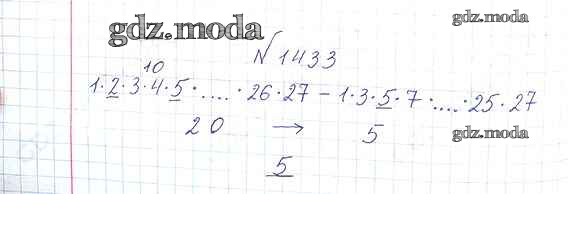 gdz.moda
gdz.moda
N 1433
10
1·2·3·4·5·....·26·27 – 1·3·5·7·....·25·27
20 → 5
gdz.moda
5